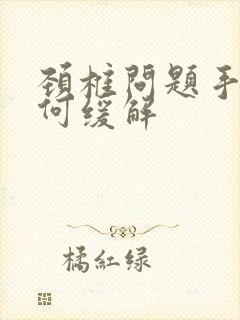 颈柱问题手
何缓解
橘红绿